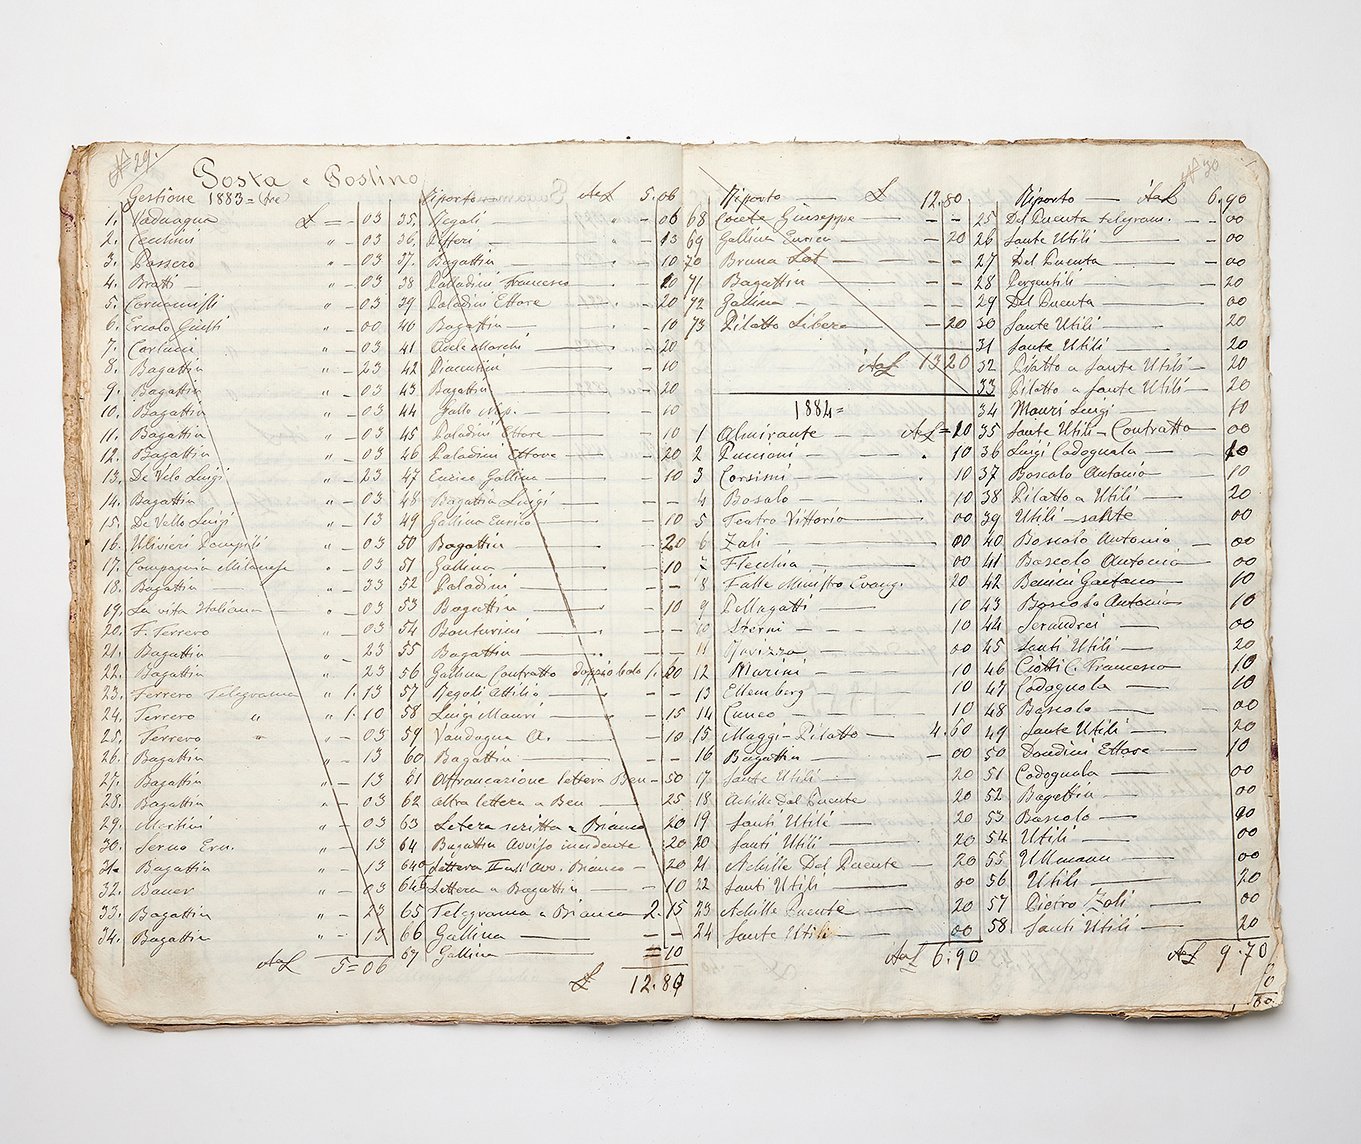 N 29.
Posta e Postino
Gestione 1883 =
1. Vanduagna £ = - 03
2. Centini " - 03
3. Passero " - 03
4. Bratti - " - 03
5. " - 03
6. Ercolo Giusti " - 00
7. Carlucci " - 03
8. Bagattin " - 23
9. Bagattin " - 03
10. Bagattin " - 03
11. Bagattin " - 03
12. Bagattin " - 03
13. De Velo Luigi " - 23
14. Bagattin " - 03
15. De Vello Luigi " - 13
16. Ulivieri Pompili " - 03
17. Compagnia Milanese " - 03
18. Bagattin " - 33
19. La vita Italiana " - 03
20. F. Ferrero " - 03
21. Bagattin " - 23
22. Bagattin " - 23
23. Ferrero Telegrama " 1. 13
24. Ferrero " " 1. 10
25. Ferrero " " - 03
26. Bagattin " - 13
27. Bagattin " - 13
28. Bagattin " - 03
29. Martini " - 03
30. Serno Ern. " - 13
31. Bagattin " - 13
32. Bauer " - 03
33. Bagattin " - 23
34. Bagattin " - 13
5=06
Riporto 5.06
35. Regali - 06
36. Pifferi - 13
37. Bagattin - 10
38 Palladini Francesco - 20
39 Paladini Ettore - 20
40 Bagattin - 10
41 Adele Marchi - 20
42 Piacentini - 10
43 Bagattin - 20
44 Gallo Nap. - 10
45 Paladini Ettore - 10
46 Paladini Ettore - 20
47 Enrico Gallina - 10
48 Bagattin Luigi - -
49 Gallina Enrico - 10
50 Bagattin - 20
51 Gallina - 10
52 Paladini - -
53 Bagattin - 10
54 Bonturini - -
55 Bagattin - -
56 Gallina Contratto doppio bolo 1. 20
57 Regoli Attilio - -
58 Luigi Mauri - 15
59 Vandagna A. - 10
60 Bagattin - -
61 Affrancazione lettera Ben - 50
62 altra lettera a Ben - 25
63 Letera scritta a Bianco 20
64 Bagattin Avviso incidente 20
64 Lettera II all'Avv. Bianco - 20
64 Lettera a Bagattin - 10
65 Telegrama a Bianco 2. 15
66 Gallina - -
67 Gallina = 10
£ 12.80
N 30
Riporto £ 12.80
68 Corete Giuseppe - -
69 Gallina Enrico - 20
70 Bruna - -
71 Bagattin - -
72 Gallina - - -
73 Pilatto Libero - 20
13 20
1884=
1 Almirante = 10
2 Puccioni . 10
3 Corsini . 10
4 Bosalo . 10
5 Teatro Vittorio 00
6 Zali 00
7 Flecchia 00
8 Falle Ministro Evang. 20
9 P. Magatti 10
10 Sterni 10
11 Navizza 00
12 Marini 10
13 Ellemberg 10
14 Cuneo 10
15 Maggi - Pilatto 4. 60
16 Bagattin - 00
17 Sante Utili 20
18 Achille Dal Puente 20
19 Santi Utili 20
20 Santi Utili 20
21 Achille Del Puente 20
22 Santi Utili 00
23 Achille Puente 20
24 Sante Utili 00
6.90
Riporto 6.90
25 Del Puente telgram. - 00
26 Sante Utili - 00
27 Del Puente - 00
28 Pergentili - 20
29 Del Puente 00
30 Sante Utili 20
31 Sante Utili 20
32 Pilatto a Sante Utili 20
33 Pilatto a Sante Utili 20
34 Mauri Luigi 10
35 Sante Utili - Contratto 00
36 Luigi Codognola 10
37 Boscolo Antonio 10
38 Pilatto a Utili 20
39 Utili - sante 00
40 Boscolo Antonio - 00
41 Boscolo Antonio 00
42 Benini Gaetano 10
43 Boscolo Antonio 10
44 Serandrei 00
45 Santi Utili 20
46 Ciotti C. Francesco 10
47 Codognola 10
48 Boscolo 00
49 Sante Utili 20
50 Dondini Ettore 10
51 Codognola 00
52 Bagattin 00
53 Boscolo 90
54 Utili 00
55 Ullmann 00
56 Utili 20
57 Pietro Zoli 00
58 Santi Utili 20
9.70